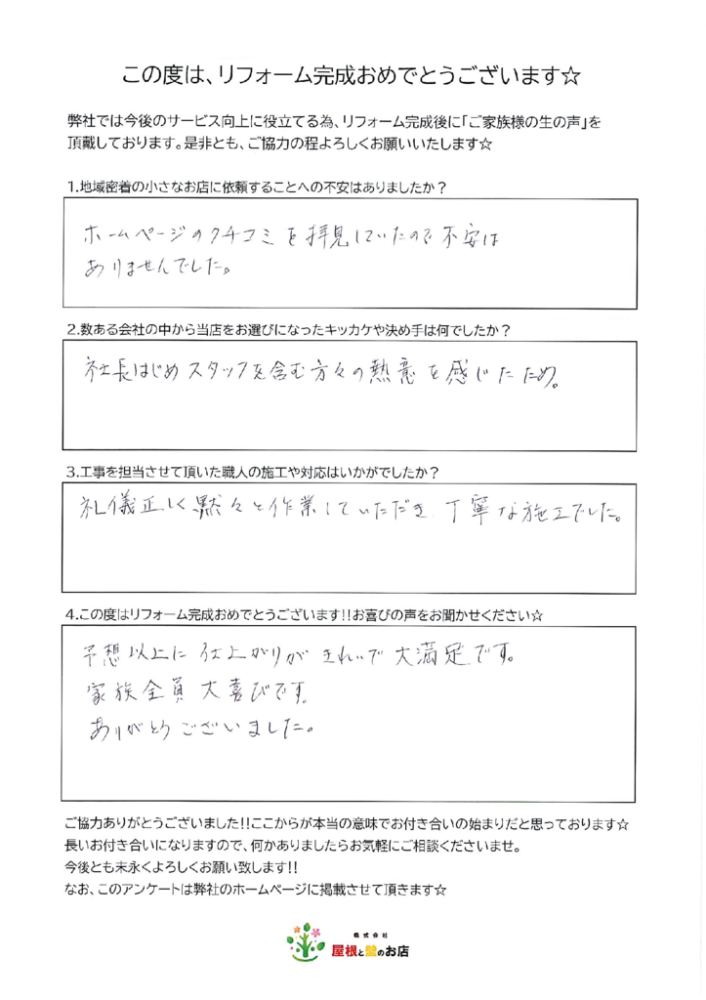 この度は、リフォーム完成おめでとうございます☆
弊社では今後のサービス向上に役立てる為、リフォーム完成後に「ご家族様の生の声」を
頂戴しております。是非とも、ご協力の程よろしくお願いいたします☆
1.地域密着の小さなお店に依頼することへの不安はありましたか？
ホームページのクチコミを拝見していたので不安は
ありませんでした。
2.数ある会社の中から当店をお選びになったキッカケや決め手は何でしたか？
社長はじめスタッフを含む方々の熱意を感じたため。
3.工事を担当させて頂いた職人の施工や対応はいかがでしたか？
礼儀正しく黙々と作業していただき、丁寧な施工でした。
4.この度はリフォーム完成おめでとうございます!!お喜びの声をお聞かせください☆
予想以上に仕上がりがきれいで大満足です。
家族全員大喜びです。
ありがとうございました。
ご協力ありがとうございました!!ここからが本当の意味でお付き合いの始まりだと思っております☆
長いお付き合いになりますので、何かありましたらお気軽にご相談くださいませ。
今後とも末永くよろしくお願い致します!!
なお、このアンケートは弊社のホームページに掲載させて頂きます☆
株式会社
屋根と壁のお店